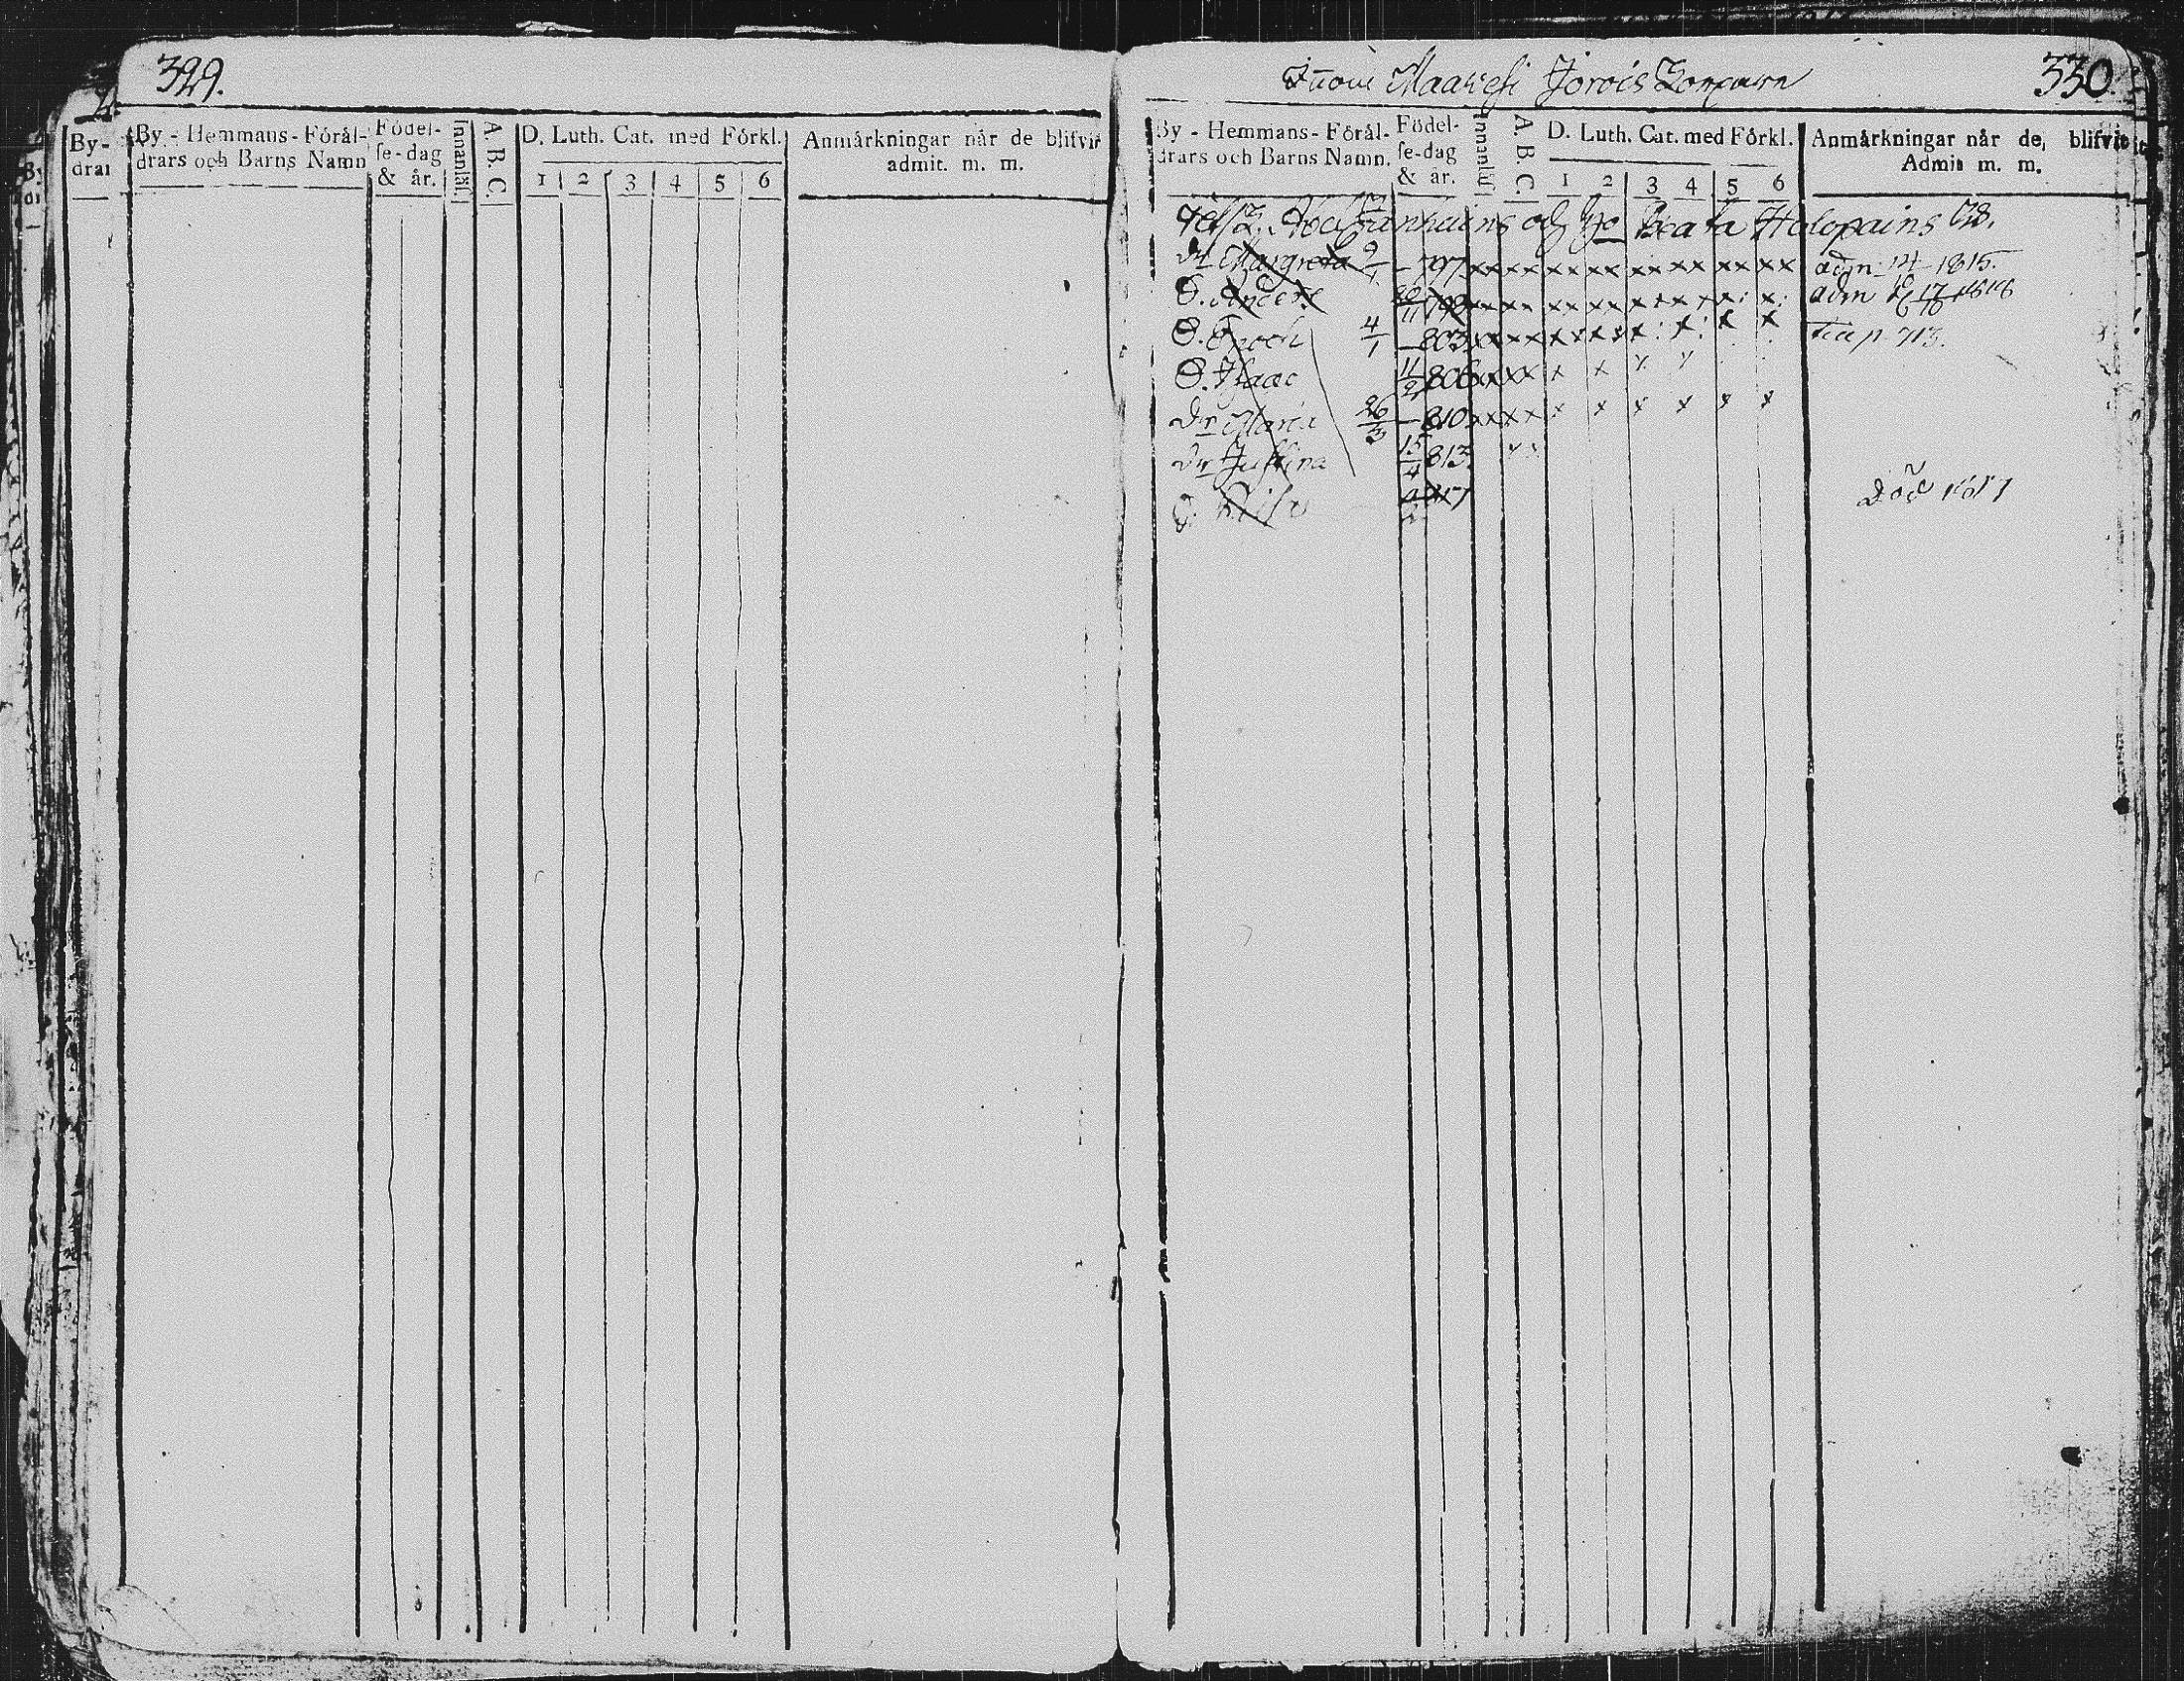 329.
By-
drar
By - Hemmans - Förål-
drars och Barns Namn
Födel-
se-dag
& år.
Innanläs.
A B C.
D. Luth. Cat. med Förkl.
1 2 3 4 5 6
Anmärkningar når de blifvit
admit. m. m.
Maariesi
330.
By - Hemmans - Förål-
drars och Barns Namn.
Födel-
se-dag
& år.
Innanläs
A B C.
D. Luth. Cat. med Förkl.
1 2 3 4 5 6
Anmärkningar når de, blifvit
Admit m. m.
och Beata Holopains
Dr Margreta 9/1 - 797 xx xx xx xx xx xx xx xx adm 1815.
S. Anders adm
S. Enoch 4/1 - 803 p 713.
S. Isaac 11/2 806
Dr Maria 26/3 - 810
Dr Justina 15/4 813.
död 1817